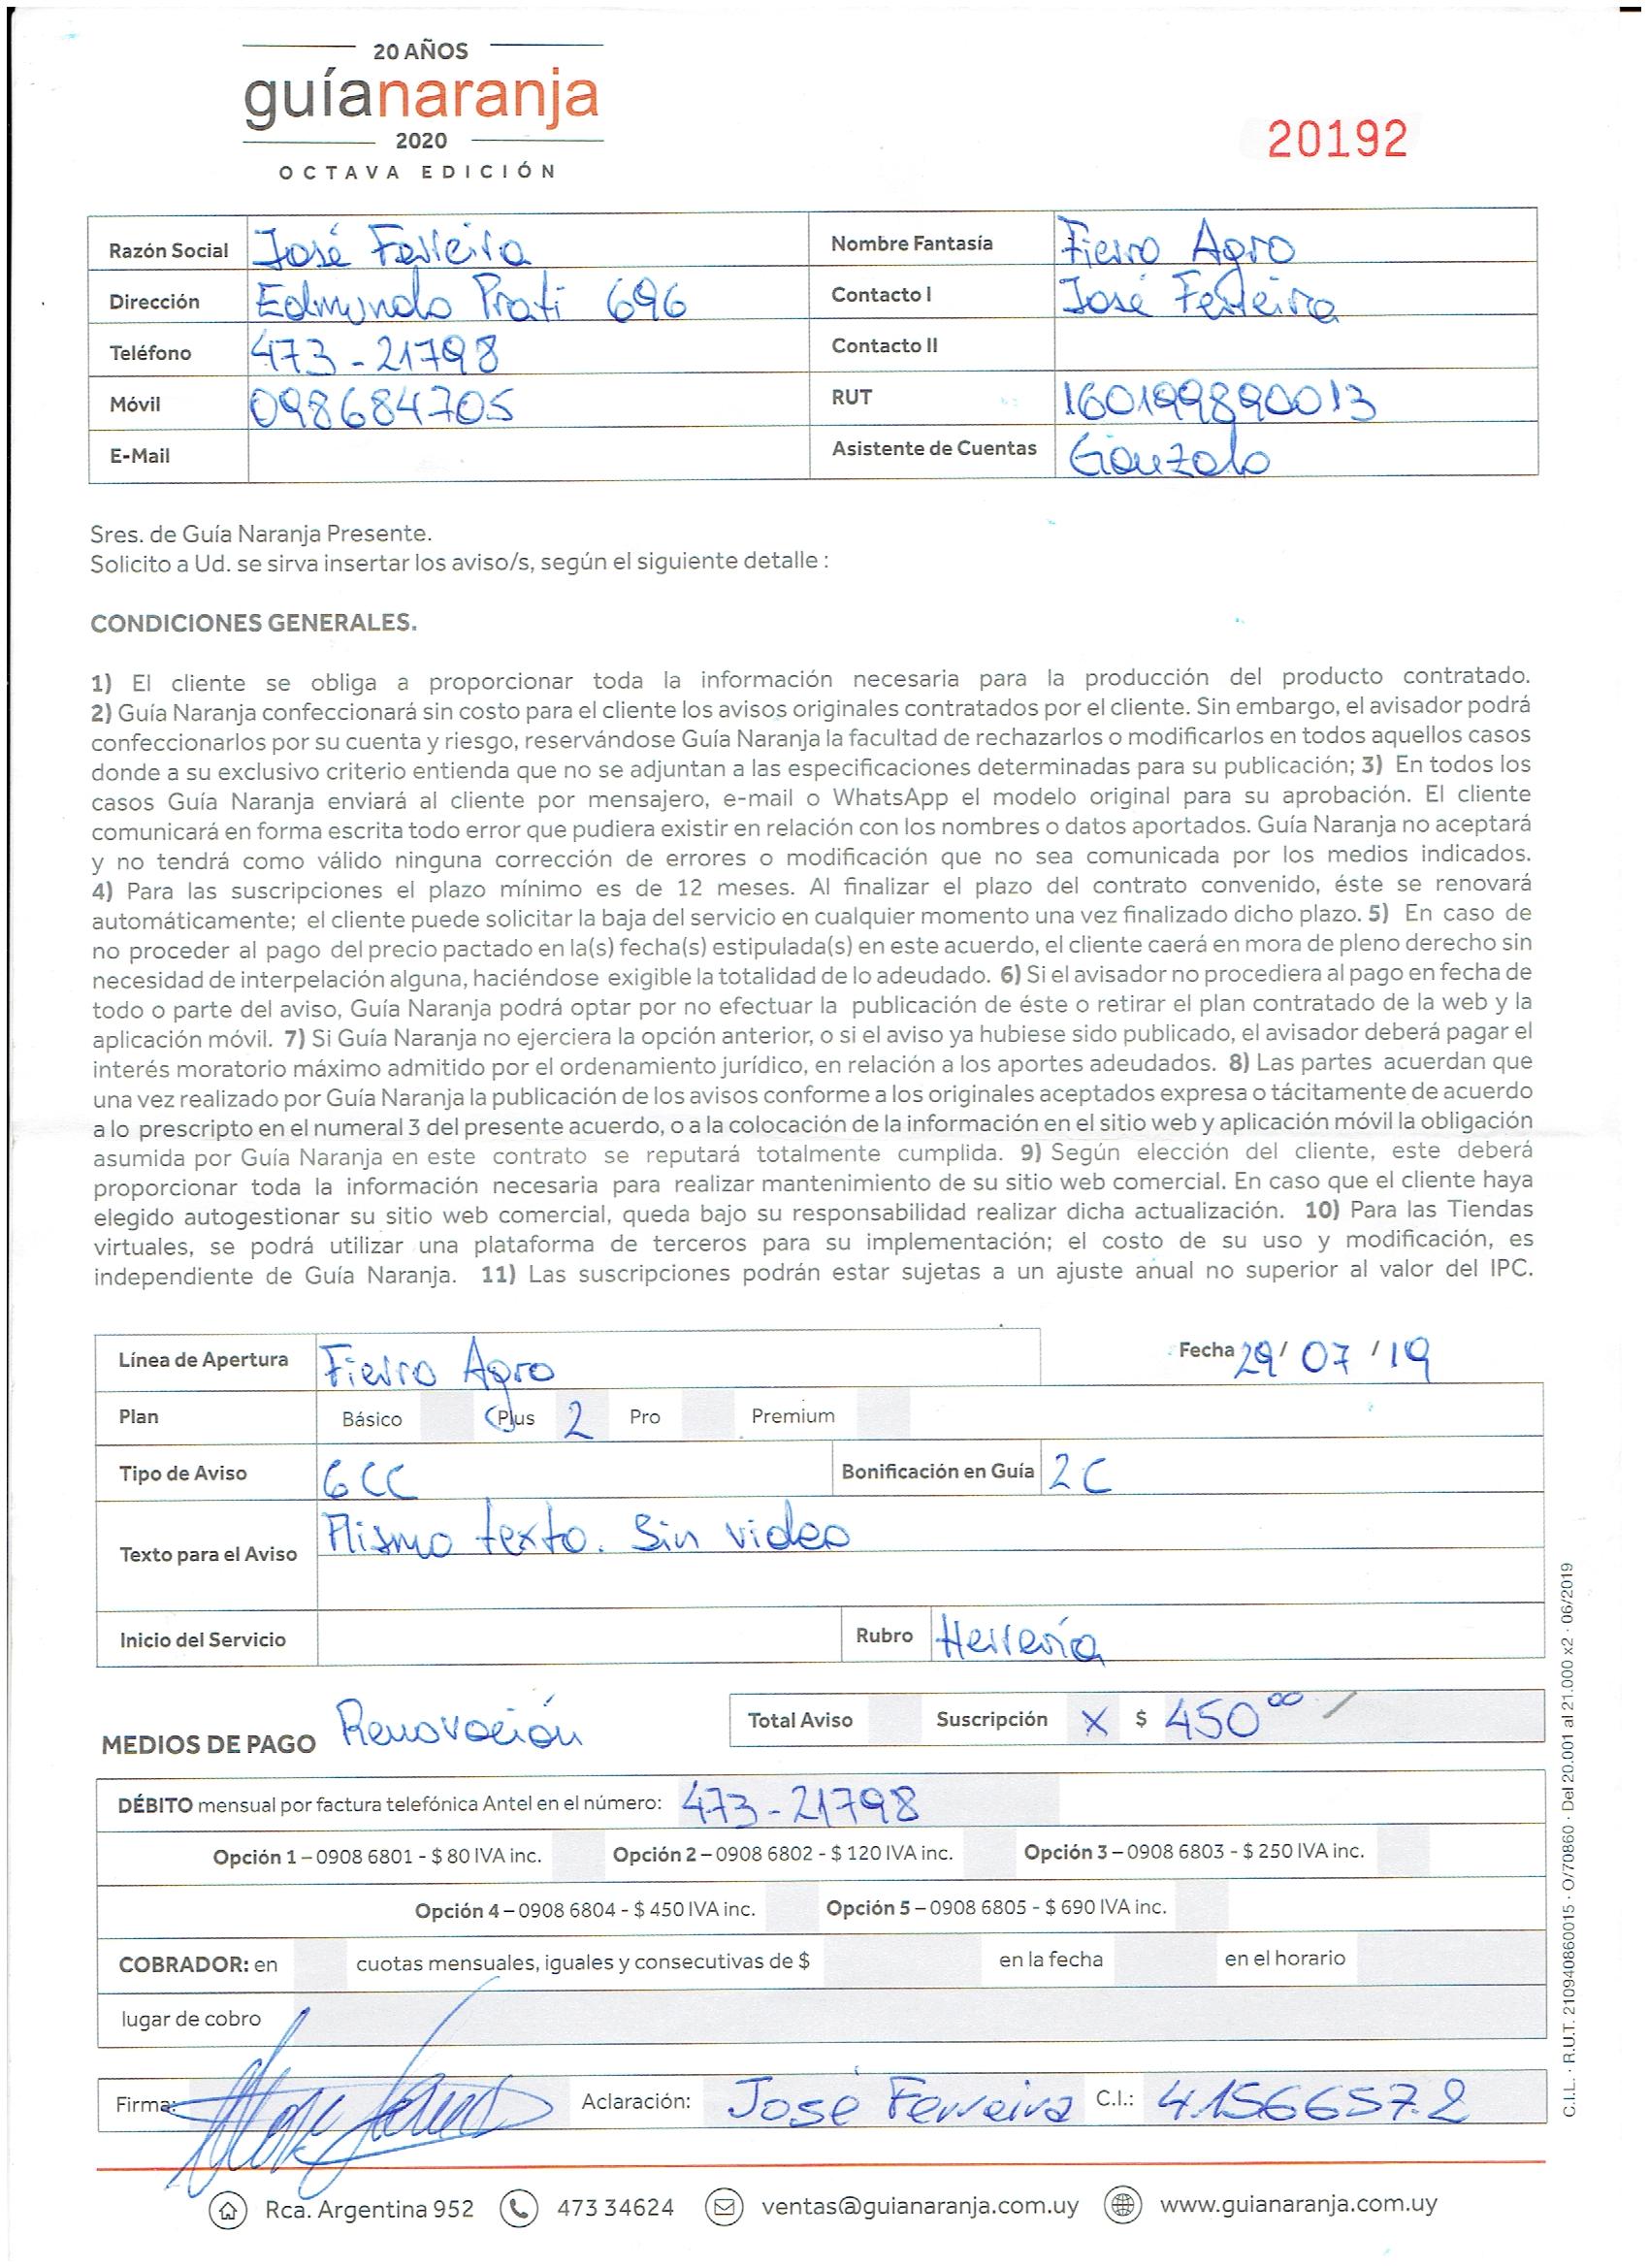 20 AÑOS
guíanaranja
2020
OCTAVA EDICIÓN
20192
Razón Social José Ferreira Nombre Fantasía Fierro Agro
Dirección Edmundo Prati 696 Contacto I José Ferreira
Teléfono 473-21798 Contacto II
Móvil 098684705 RUT 160199890013
E-Mail Asistente de Cuentas Gonzalo
Sres. de Guía Naranja Presente.
Solicito a Ud. se sirva insertar los aviso/s, según el siguiente detalle :
CONDICIONES GENERALES.
1) El cliente se obliga a proporcionar toda la información necesaria para la producción del producto contratado.
2) Guía Naranja confeccionará sin costo para el cliente los avisos originales contratados por el cliente. Sin embargo, el avisador podrá
confeccionarlos por su cuenta y riesgo, reservándose Guía Naranja la facultad de rechazarlos o modificarlos en todos aquellos casos
donde a su exclusivo criterio entienda que no se adjuntan a las especificaciones determinadas para su publicación; 3) En todos los
casos Guía Naranja enviará al cliente por mensajero, e-mail o WhatsApp el modelo original para su aprobación. El cliente
comunicará en forma escrita todo error que pudiera existir en relación con los nombres o datos aportados. Guía Naranja no aceptará
y no tendrá como válido ninguna corrección de errores o modificación que no sea comunicada por los medios indicados.
4) Para las suscripciones el plazo mínimo es de 12 meses. Al finalizar el plazo del contrato convenido, éste se renovará
automáticamente; el cliente puede solicitar la baja del servicio en cualquier momento una vez finalizado dicho plazo. 5) En caso de
no proceder al pago del precio pactado en la(s) fecha(s) estipulada(s) en este acuerdo, el cliente caerá en mora de pleno derecho sin
necesidad de interpelación alguna, haciéndose exigible la totalidad de lo adeudado. 6) Si el avisador no procediera al pago en fecha de
todo o parte del aviso, Guía Naranja podrá optar por no efectuar la publicación de éste o retirar el plan contratado de la web y la
aplicación móvil. 7) Si Guía Naranja no ejerciera la opción anterior, o si el aviso ya hubiese sido publicado, el avisador deberá pagar el
interés moratorio máximo admitido por el ordenamiento jurídico, en relación a los aportes adeudados. 8) Las partes acuerdan que
una vez realizado por Guía Naranja la publicación de los avisos conforme a los originales aceptados expresa o tácitamente de acuerdo
a lo prescripto en el numeral 3 del presente acuerdo, o a la colocación de la información en el sitio web y aplicación móvil la obligación
asumida por Guía Naranja en este contrato se reputará totalmente cumplida. 9) Según elección del cliente, este deberá
proporcionar toda la información necesaria para realizar mantenimiento de su sitio web comercial. En caso que el cliente haya
elegido autogestionar su sitio web comercial, queda bajo su responsabilidad realizar dicha actualización. 10) Para las Tiendas
virtuales, se podrá utilizar una plataforma de terceros para su implementación; el costo de su uso y modificación, es
independiente de Guía Naranja. 11) Las suscripciones podrán estar sujetas a un ajuste anual no superior al valor del IPC.
Línea de Apertura Fierro Agro Fecha 29/07/19
Plan Básico Plus 2 Pro Premium
Tipo de Aviso 6CC Bonificación en Guía 2C
Texto para el Aviso Mismo texto. Sin video
Inicio del Servicio Rubro Herrería
MEDIOS DE PAGO Renovación Total Aviso Suscripción X $ 450 00
DÉBITO mensual por factura telefónica Antel en el número: 473-21798
Opción 1 – 0908 6801 - $ 80 IVA inc. Opción 2 – 0908 6802 - $ 120 IVA inc. Opción 3 – 0908 6803 - $ 250 IVA inc.
Opción 4 – 0908 6804 - $ 450 IVA inc. Opción 5 – 0908 6805 - $ 690 IVA inc.
COBRADOR: en cuotas mensuales, iguales y consecutivas de $ en la fecha en el horario
lugar de cobro
Firma: Aclaración: José Ferreira C.I.: 4.156657.2
Rca. Argentina 952 473 34624 ventas@guianaranja.com.uy www.guianaranja.com.uy
C.I.L. · R.U.T. 210940860015 · O/70860 · Del 20.001 al 21.000 x2 · 06/2019